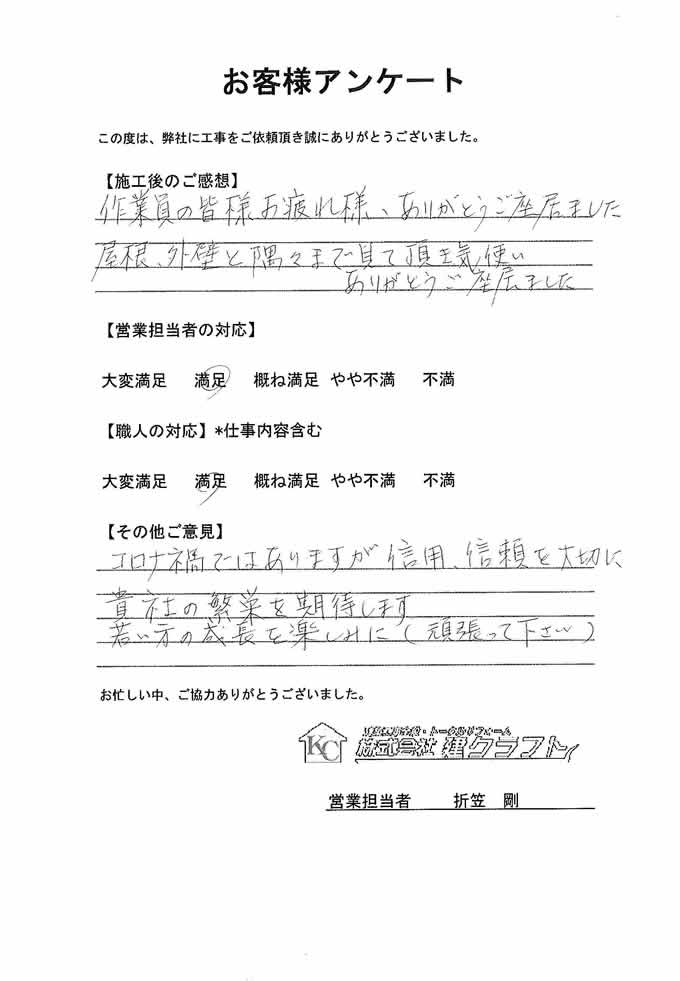 お客様アンケート
この度は、弊社に工事をご依頼頂き誠にありがとうございました。
【施工後のご感想】
作業員の皆様お疲れ様、ありがとうご座居ました
屋根、外壁と隅々まで見て頂き気使い
ありがとうご座居ました
【営業担当者の対応】
大変満足 満足 概ね満足 やや不満 不満
【職人の対応】*仕事内容含む
大変満足 満足 概ね満足 やや不満 不満
【その他ご意見】
コロナ禍ではありますが信用、信頼を大切に
貴社の繁栄を期待します
若い方の成長を楽しみに(頑張って下さい)
お忙しい中、ご協力ありがとうございました。
KC
株式会社 建クラフト
営業担当者 折笠 剛